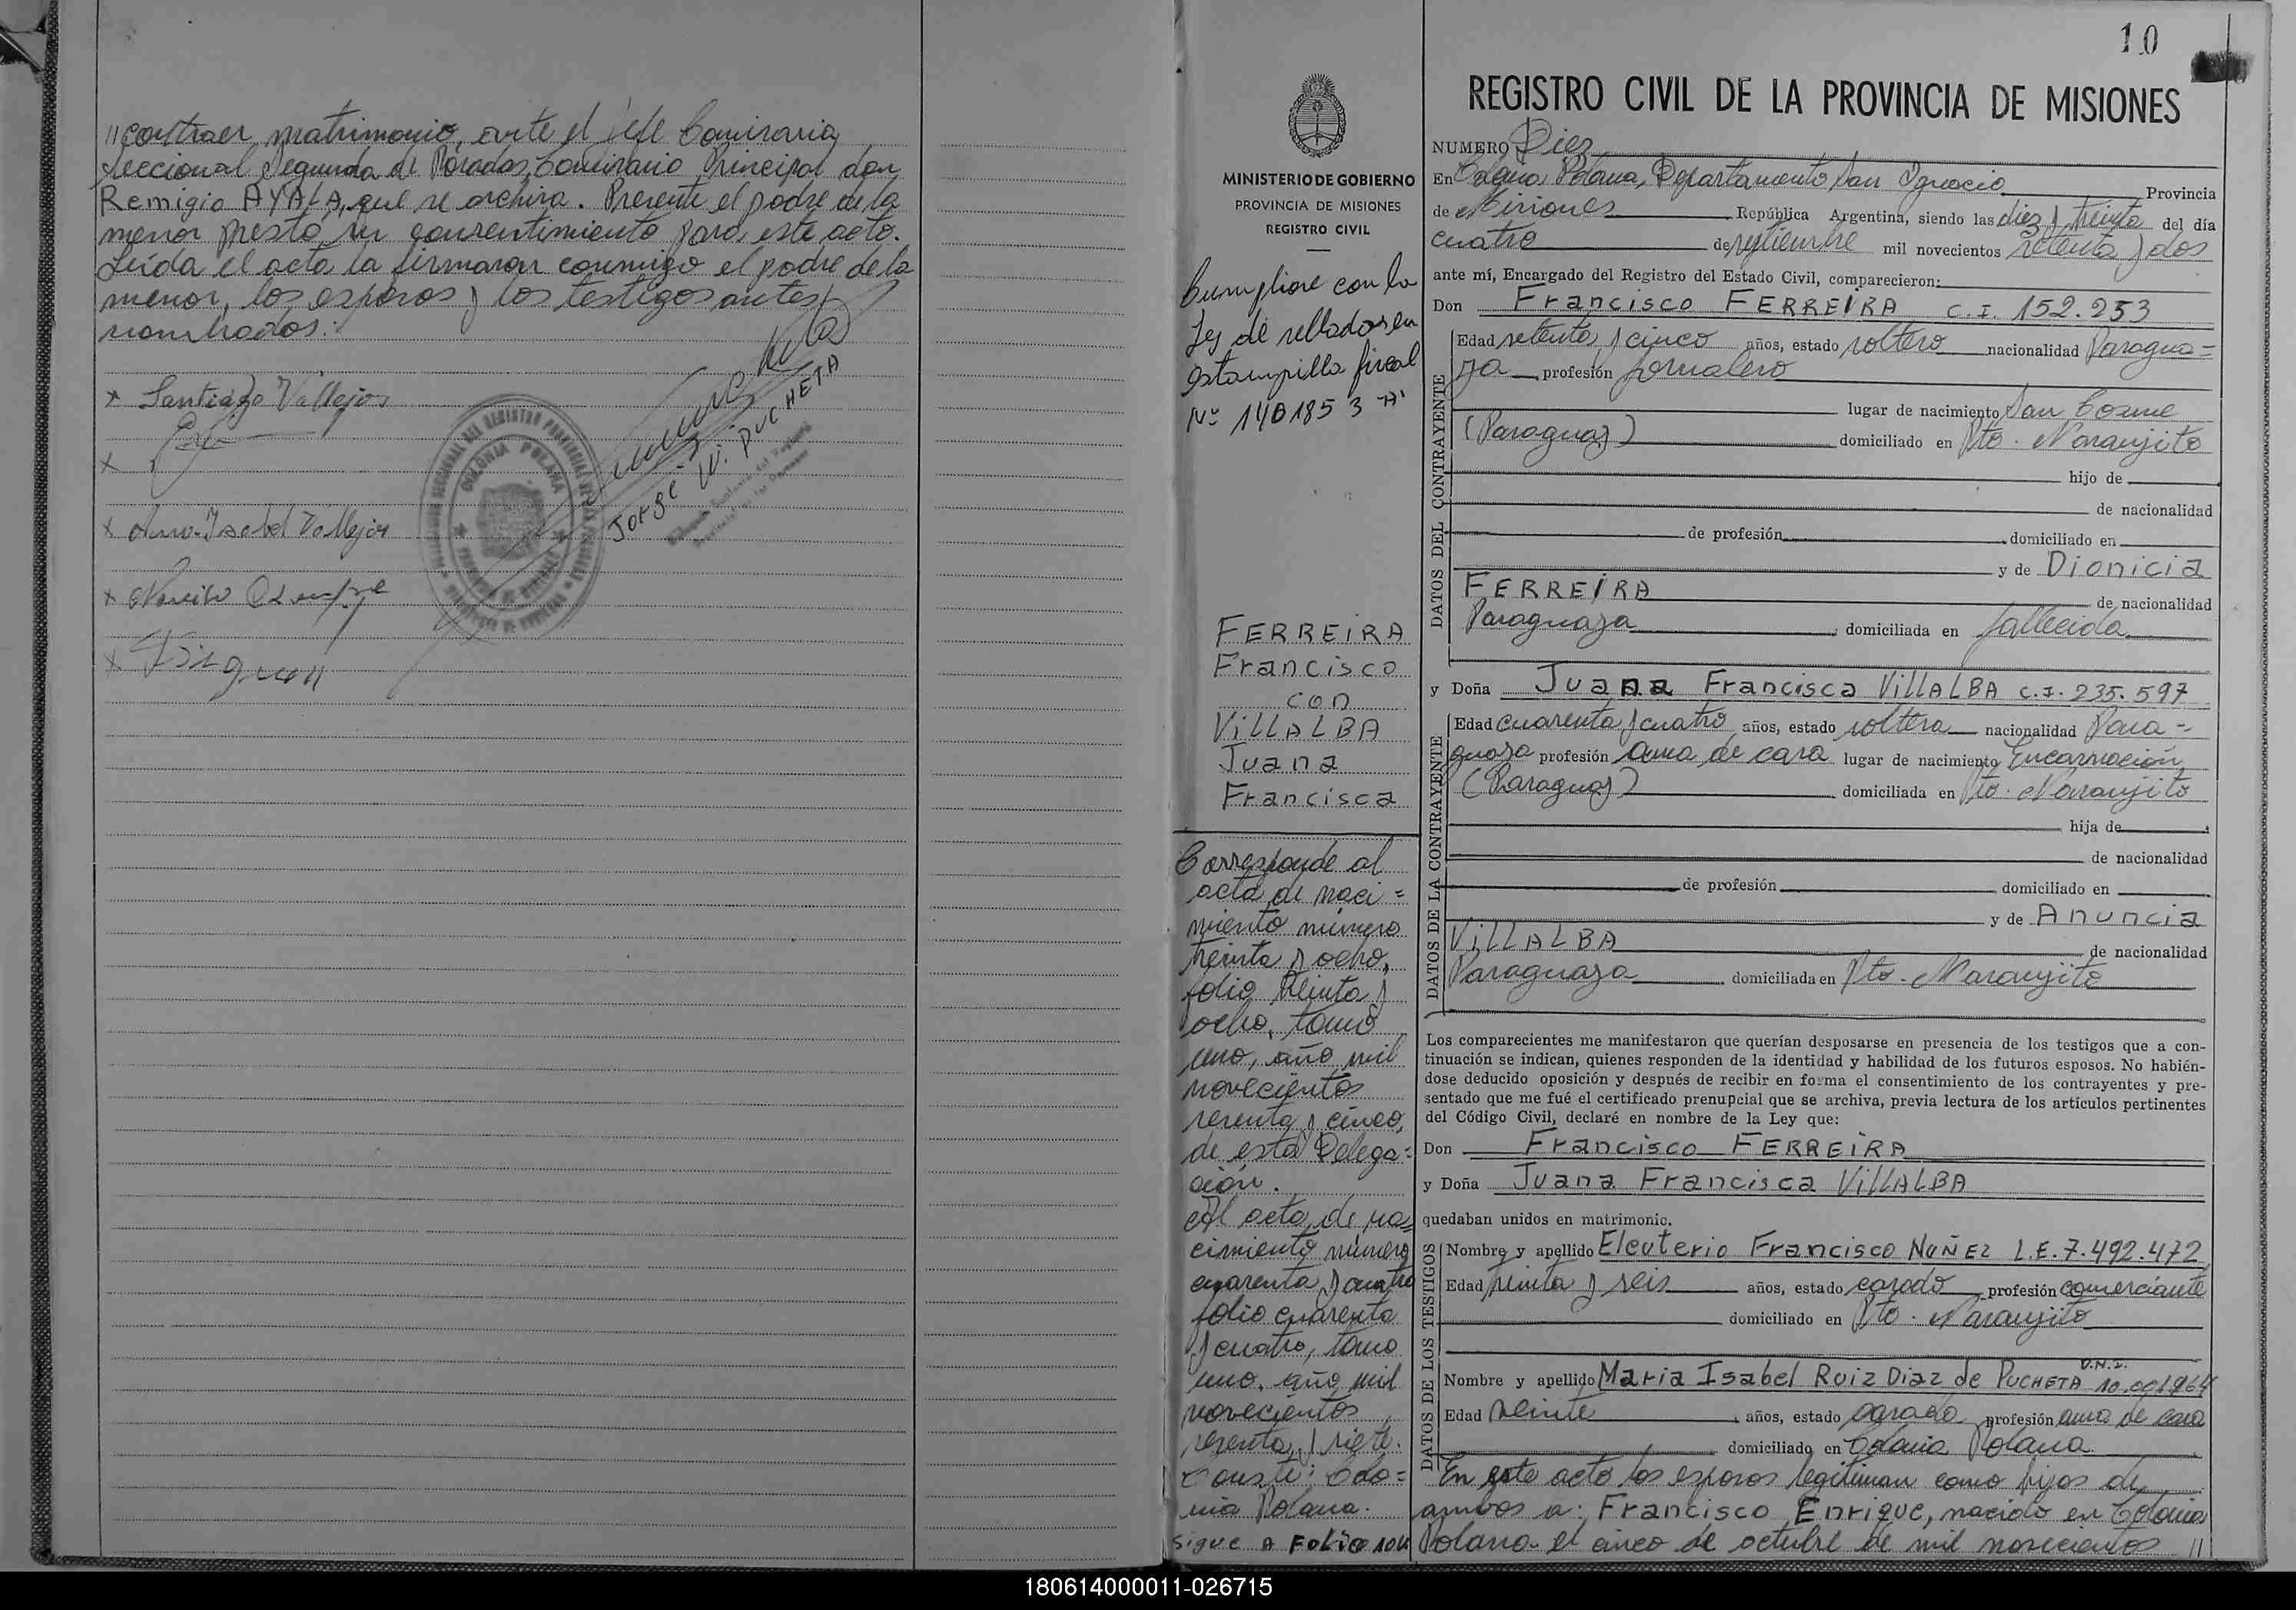 //contraer matrimonio, ante el Jefe Comisaria
Seccional Segunda de Posadas, Comisario Principal don
Remigio AYALA, que se archiva. Presente el padre de la
menor prestó su consentimiento para este acto.
Leída el acta la firmaron conmigo el padre de la
menor, los esposos y los testigos antes
nombrados:
x Santiago Vallejos
x
x Ana Isabel Vallejos
x
x
Jorge W. PUCHETA
COLONIA POLANA
10
REGISTRO CIVIL DE LA PROVINCIA DE MISIONES
MINISTERIO DE GOBIERNO
PROVINCIA DE MISIONES
REGISTRO CIVIL
Cumplióse con la
Ley de sellados en
estampilla fiscal
Nº 1401853 "A"
FERREIRA
Francisco
con
VILLALBA
Juana
Francisca
Corresponde al
acta de naci=
miento número
treinta y ocho,
folio treinta y
ocho, tomo
uno, año mil
novecientos
sesenta y cinco,
de esta Delega=
ción.
Al acta de na=
cimiento número
cuarenta y cuatro
folio cuarenta
y cuatro, tomo
uno, año mil
novecientos
sesenta y siete.
Conste: Colo=
nia Polana.
Sigue A FOLIO 10
NUMERO Diez
En Colonia Polana, Departamento San Ignacio Provincia
de Misiones República Argentina, siendo las diez y treinta del día
cuatro de septiembre mil novecientos setenta y dos
ante mí, Encargado del Registro del Estado Civil, comparecieron:
Don Francisco FERREIRA C.I. 152.253
DATOS DEL CONTRAYENTE
Edad setenta y cinco años, estado soltero nacionalidad Paragua=
ya profesión jornalero
lugar de nacimiento San Cosme
(Paraguay) domiciliado en Pto. Naranjito
hijo de
de nacionalidad
de profesión domiciliado en
y de Dionicia
FERREIRA de nacionalidad
Paraguaya domiciliada en fallecida
y Doña Juana Francisca VILLALBA C.I. 235.597
DATOS DE LA CONTRAYENTE
Edad cuarenta y cuatro años, estado soltera nacionalidad Para=
guaya profesión ama de casa lugar de nacimiento Encarnación
(Paraguay) domiciliada en Pto. Naranjito
hija de
de nacionalidad
de profesión domiciliado en
y de Anuncia
VILLALBA de nacionalidad
Paraguaya domiciliada en Pto. Naranjito
Los comparecientes me manifestaron que querían desposarse en presencia de los testigos que a con-
tinuación se indican, quienes responden de la identidad y habilidad de los futuros esposos. No habién-
dose deducido oposición y después de recibir en forma el consentimiento de los contrayentes y pre-
sentado que me fué el certificado prenupcial que se archiva, previa lectura de los artículos pertinentes
del Código Civil, declaré en nombre de la Ley que:
Don Francisco FERREIRA
y Doña Juana Francisca VILLALBA
quedaban unidos en matrimonio.
DATOS DE LOS TESTIGOS
Nombre y apellido Eleuterio Francisco NUÑEZ L.E. 7.492.472
Edad treinta y seis años, estado casado profesión comerciante
domiciliado en Pto. Naranjito
DATOS DE LOS TESTIGOS
Nombre y apellido Maria Isabel Ruiz Diaz de PUCHETA D.N.I. 10.001.964
Edad veinte años, estado casada profesión ama de casa
domiciliado en Colonia Polana
En este acto los esposos legitiman como hijos de
ambos a: Francisco Enrique, nacido en Colonia
Polana el cinco de octubre de mil novecientos //
180614000011-026715